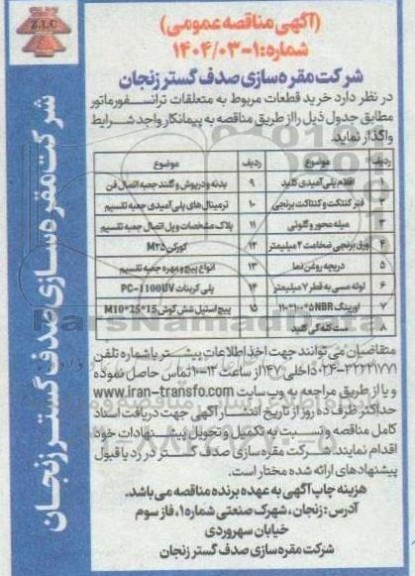 Z.I.C
شرکت مقره سازی صدف گستر زنجان
(آگهی مناقصه عمومی)
شماره: ۱-۱۴۰۴/۰۳
شرکت مقره سازی صدف گستر زنجان
در نظر دارد خرید قطعات مربوط به متعلقات ترانسفورماتور
مطابق جدول ذیل را از طریق مناقصه به پیمانکار واجد شرایط
واگذار نماید.
ردیف موضوع ردیف موضوع
اقلام پلی آمیدی کلید ۹ بدنه و درپوش و گلند جعبه اتصال فن
۲ فنر کنتکت و کنتاکت برنجی ۱۰ ترمینال های پلی آمیدی جعبه تقسیم
۳ میله محور و گلوئی ۱۱ پلاک مشخصات و پل اتصال جعبه تقسیم
۴ ورق برنجی ضخامت ۲ میلیمتر ۱۲ کورکن M25
۵ دریچه روغن نما ۱۳ انواع پیچ و مهره جعبه تقسیم
۶ لوله مسی به قطر ۷ میلیمتر ۱۴ پلی کربنات PC-1100UV
۷ اورینگ NBR ۱۵ پیچ استیل شش گوش M10*25*15
۸ ست کله گی کلید
متقاضیان می توانند جهت اخذ اطلاعات بیشتر با شماره تلفن
داخلی ۱۴۷ از ساعت ۱۲-۱۰ تماس حاصل نموده
و یا از طریق مراجعه به وب سایت www.iran-transfo.com
حداکثر ظرف ده روز از تاریخ انتشار آگهی جهت دریافت اسناد
کامل مناقصه و نسبت به تکمیل و تحویل پیشنهادات خود
اقدام نمایند. شرکت مقره سازی صدف گستر در رد یا قبول
پیشنهادهای ارائه شده مختار است.
هزینه چاپ آگهی به عهده برنده مناقصه می باشد.
آدرس: زنجان، شهرک صنعتی شماره ۱، فاز سوم
خیابان سهروردی
شرکت مقره سازی صدف گستر زنجان